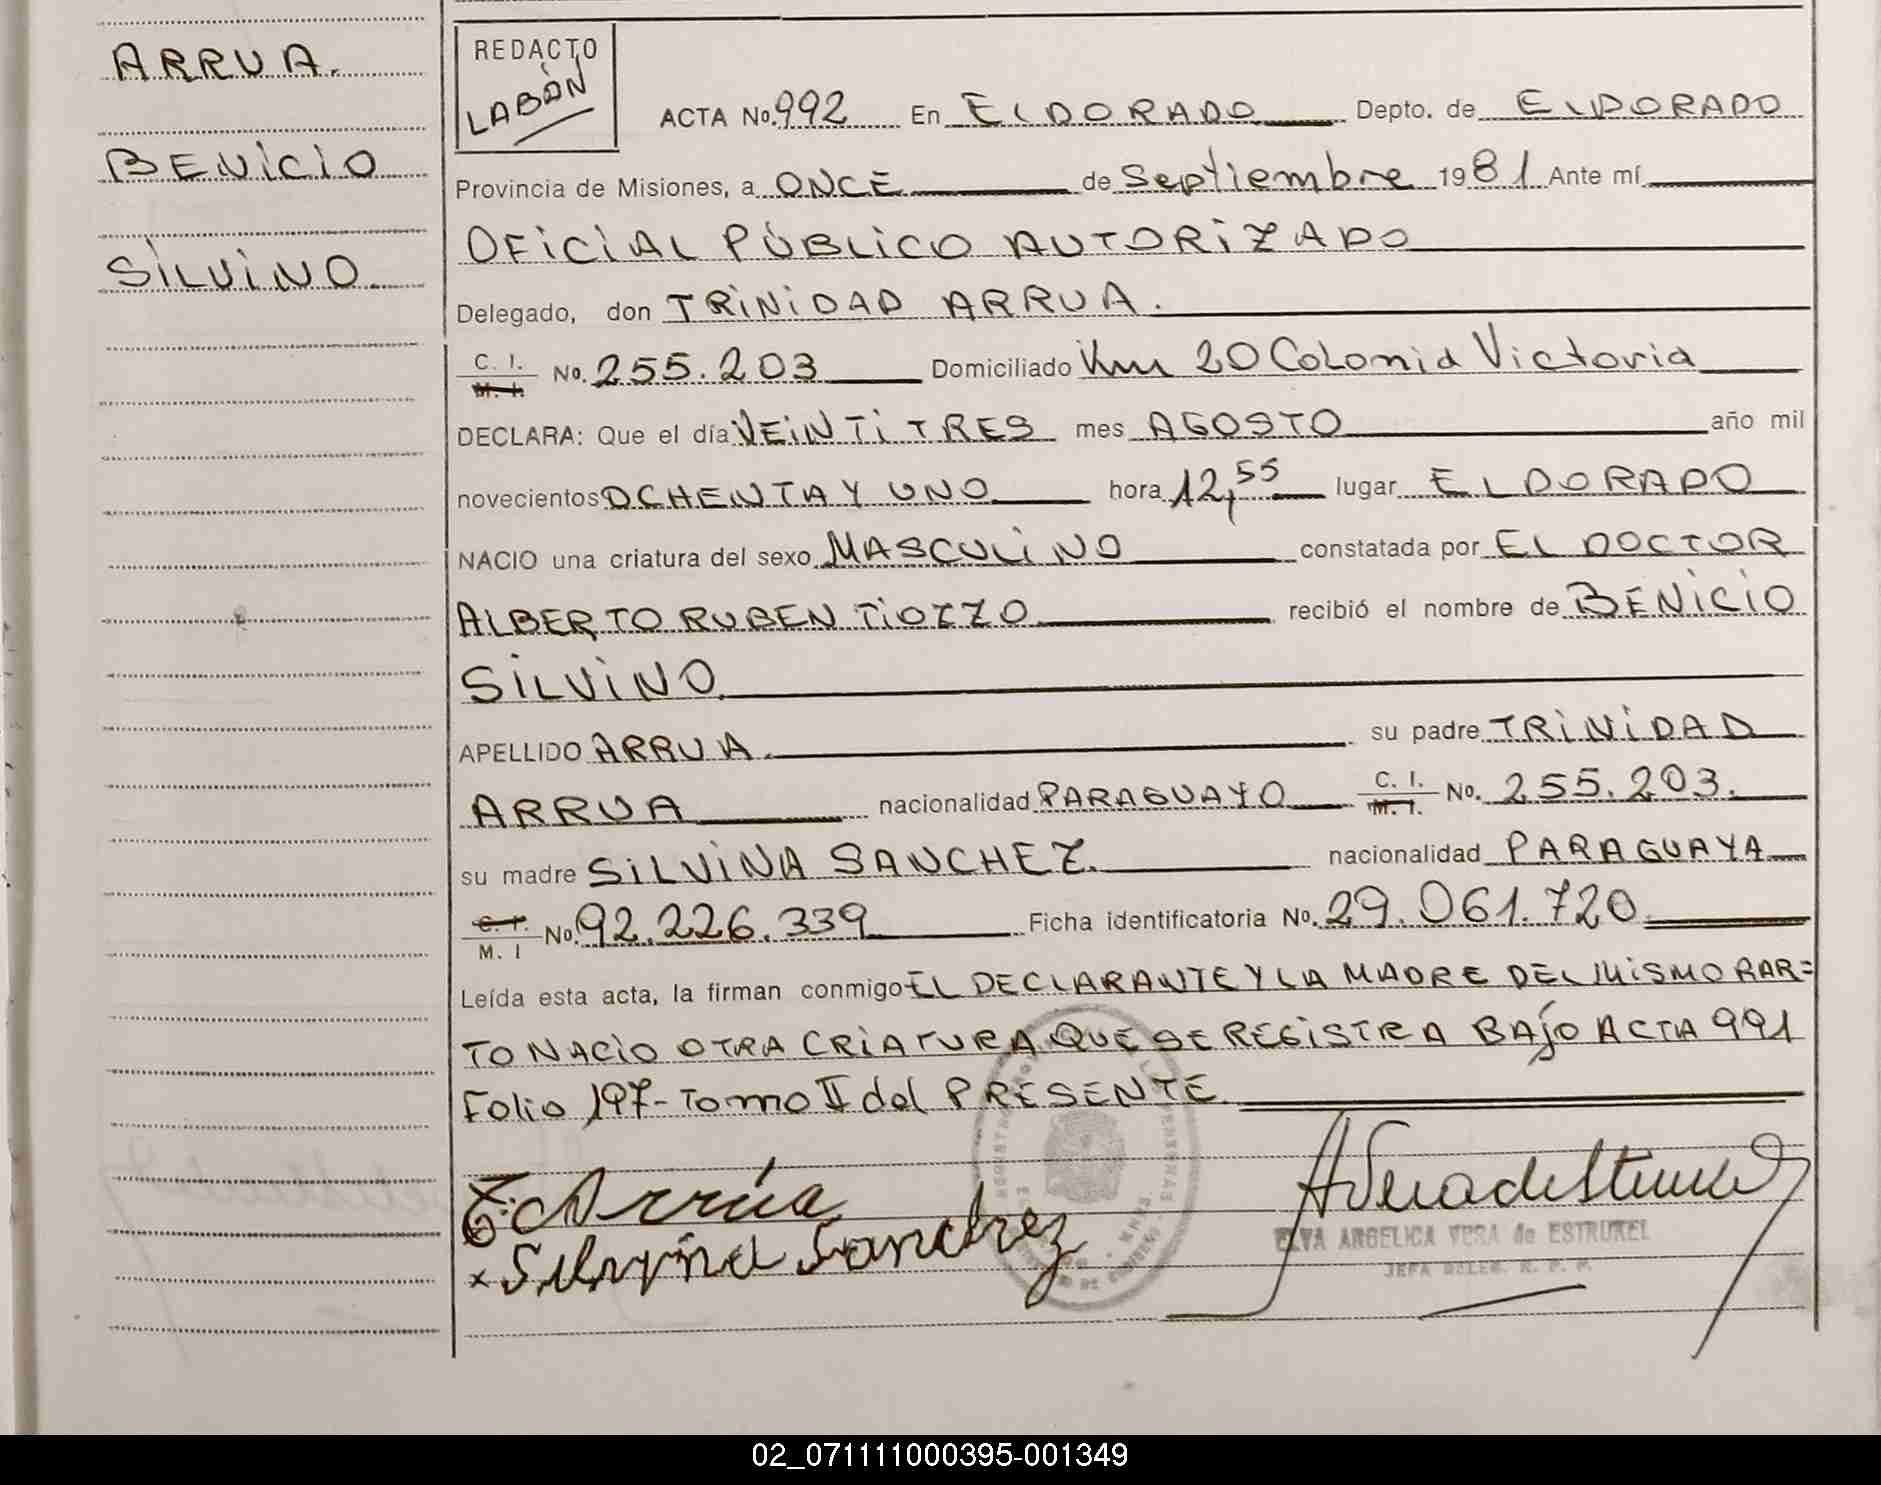 ARRUA.
BENICIO
SILVINO
REDACTO
LABÓN
ACTA No. 992 En ELDORADO Depto. de ELDORADO
Provincia de Misiones, a ONCE de Septiembre 1981 Ante mí
OFICIAL PÚBLICO AUTORIZADO
Delegado, don TRINIDAD ARRUA.
C. I. M. I. No. 255.203 Domiciliado Km 20 Colonia Victoria
DECLARA: Que el día VEINTITRES mes AGOSTO año mil
novecientos OCHENTA Y UNO hora 12,55 lugar ELDORADO
NACIO una criatura del sexo MASCULINO constatada por EL DOCTOR
ALBERTO RUBEN TIOZZO recibió el nombre de BENICIO
SILVINO
APELLIDO ARRUA. su padre TRINIDAD
ARRUA nacionalidad PARAGUAYO C. I. M. I. No. 255.203.
su madre SILVINA SANCHEZ. nacionalidad PARAGUAYA
C. I. M. I No. 92.226.339 Ficha identificatoria No. 29.061.720
Leída esta acta, la firman conmigo EL DECLARANTE Y LA MADRE DEL MISMO PAR=
TO NACIO OTRA CRIATURA QUE SE REGISTRA BAJO ACTA 991
Folio 197- Tomo II del PRESENTE
T. Arrúa
x Silvina Sanchez
ELVA ANGELICA VERA de ESTRUKEL
JEFA DELEG. R. P. P.
02_071111000395-001349